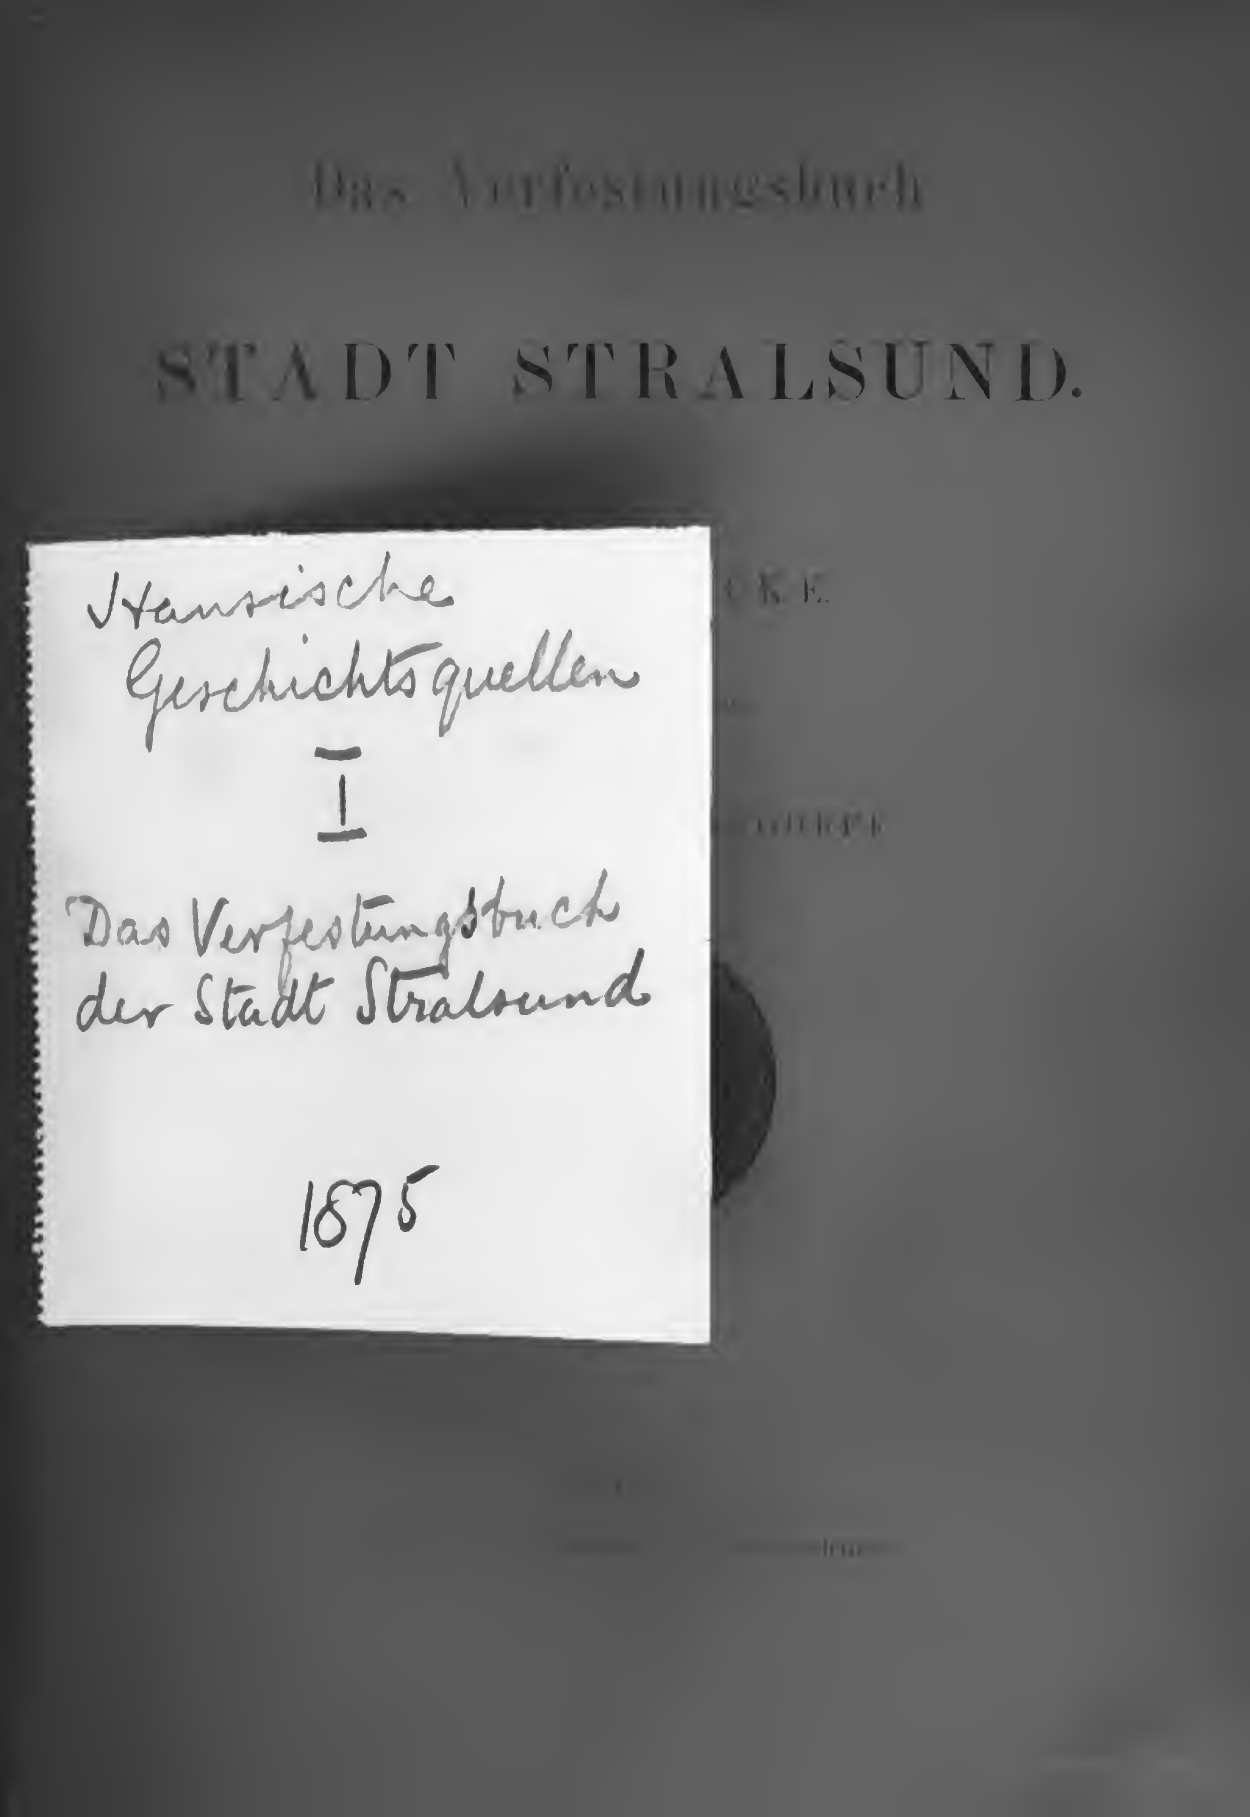 Das Verfestungsbuch
STADT STRALSUND.
Hansische
Geschichtsquellen
I
Das Verfestungsbuch
der Stadt Stralsund
1875